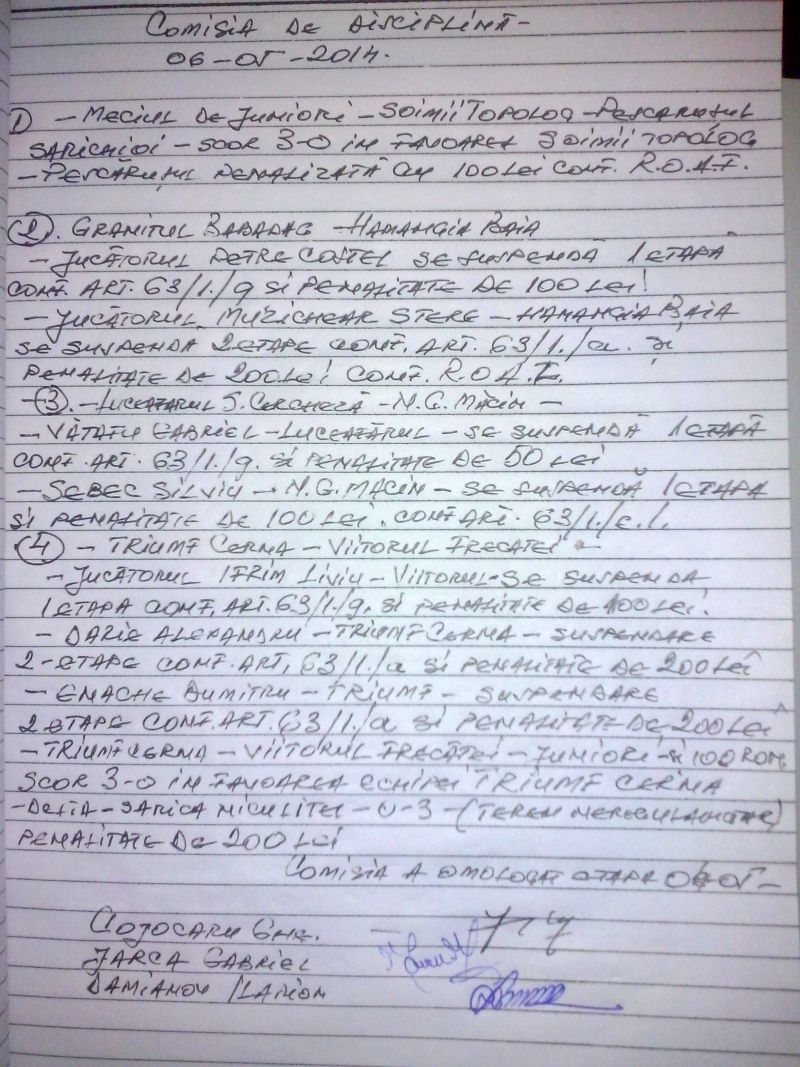 COMISIA DE DISCIPLINĂ-
06-05-2014.
1) - MECIUL DE JUNIORI - SOIMII TOPOLOG - PESCARUSUL
SARICHIOI - SCOR 3-0 IN FAVOAREA SOIMII TOPOLOG
- PESCĂRUȘUL PENALIZATĂ CU 100 LEI CONF. R.O.A.F.
(2). GRANITUL BABADAG - HAMANGIA BAIA
- JUCĂTORUL PETRE COSTEL SE SUSPENDĂ 1 ETAPĂ
CONF. ART. 63/1./g SI PENALITATE DE 100 LEI!
- JUCĂTORUL MUZICHEAR STERE - HAMANGIA BAIA
SE SUSPENDĂ 2 ETAPE CONF. ART. 63/1./a. și
PENALITATE DE 200 LEI CONF. R.O.A.F.
- (3). - LUCEAFARUL S. CERCHEZĂ - N.G. MĂCIN -
- VĂTAFU GABRIEL - LUCEAFĂRUL - SE SUSPENDĂ 1 ETAPĂ
CONF. ART. 63/1./g. SI PENALITATE DE 50 LEI
- SEBEC SILVIU - N.G. MACIN - SE SUSPENDĂ 1 ETAPA
SI PENALITATE DE 100 LEI. CONF ART. 63/1./e.1.
(4) - TRIUMF CERNA - VIITORUL FRECATEI -
- JUCĂTORUL IFRIM LIVIU - VIITORUL - SE SUSPENDA
1 ETAPA CONF. ART. 63/1./g. SI PENALITATE DE 100 LEI.
- DARIE ALEXANDRU - TRIUMF CERNA - SUSPENDARE
2 - ETAPE CONF. ART. 63/1./a SI PENALITATE DE 200 LEI
- ENACHE DUMITRU - TRIUMF - SUSPENDARE
2 ETAPE CONF. ART. 63/1./a SI PENALITATE DE 200 LEI
- TRIUMF CERNA - VIITORUL FRECĂTEI - JUNIORI - si 100 RON.
SCOR 3-0 IN FAVOAREA ECHIPEI TRIUMF CERNA
- DELTA - SARICA NICULITEL - 0-3 - (TEREN NEREGULAMENTAR)
PENALITATE DE 200 LEI
COMISIA A OMOLOGAT ETAPA 05 -
COJOCARU GHE.
JARCA GABRIEL
DAMIANOV ILARION